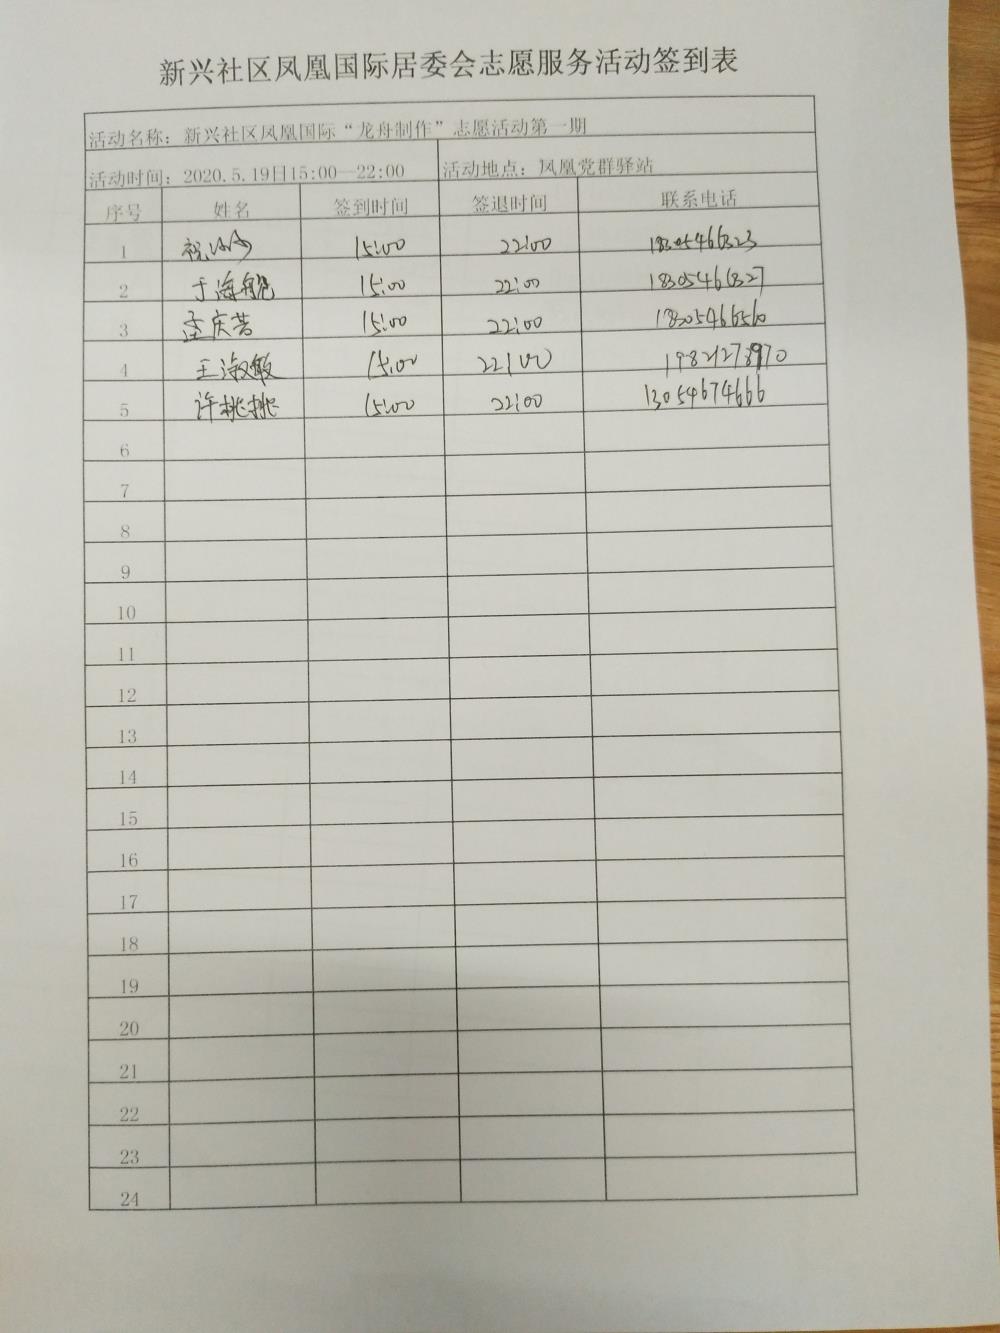 新兴社区凤凰国际居委会志愿服务活动签到表
活动名称：新兴社区凤凰国际“龙舟制作”志愿活动第一期
活动时间：2020.5.19日15:00—22:00 活动地点：凤凰党群驿站
序号 姓名 签到时间 签退时间 联系电话
1 15:00 22:00
2 于海艳 15:00 22:00 18305466327
3 孟庆芸 15:00 22:00 18305466560
4 王淑敏 15:00 22:00
5 许桃桃 15:00 22:00 13054674666
6
7
8
9
10
11
12
13
14
15
16
17
18
19
20
21
22
23
24